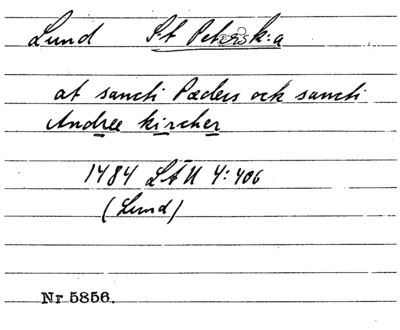 Lund St Peters k:a
at sancti Pæders ock sancti
Andree kircher
1484 LÄU 4:406
(Lund)
Nr 5856.